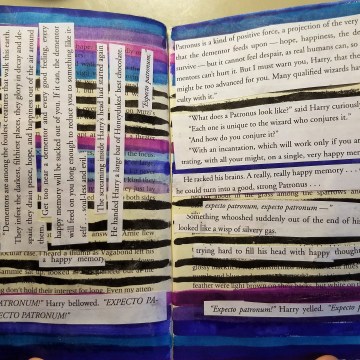 "Dementors are among the foulest creatures that walk this earth.
They infest the darkest, filthiest places, they glory in decay and de-
spair, they drain peace, hope, and happiness out of the air around
Get too near a dementor and every good feeling, every
happy memory will be sucked out of you. If it can, the dementor
will feed on you long enough to reduce you to something like it-
self
The screaming inside Harry's head had started again
He handed Harry a large bar of Honeydukes' best chocolate.
"Expecto patronum,
a happy memory
heard a thump as Vagabond left his
PATRONUM!" Harry bellowed. "EXPECTO PA-
EXPECTO PATRONUM!"
Patronus is a kind of positive force, a projection of the very
that the dementor feeds upon — hope, happiness, the de-
survive — but it cannot feel despair, as real humans can, so
mentors can't hurt it. But I must warn you, Harry, that the
might be too advanced for you. Many qualified wizards ha
culty with it."
"What does a Patronus look like?" said Harry curiousl
"Each one is unique to the wizard who conjures it."
"And how do you conjure it?"
"With an incantation, which will work only if you ar
trating, with all your might, on a single, very happy mem
He racked his brains. A really, really happy memory . . .
he could turn into a good, strong Patronus . . .
expecto patronum, expecto patronum —"
Something whooshed suddenly out of the end of hi
looked like a wisp of silvery gas.
trying hard to fill his head with happy thought
feather were light brown on their backs, but white on
"Expecto patronum!" Harry yelled. "Expecto